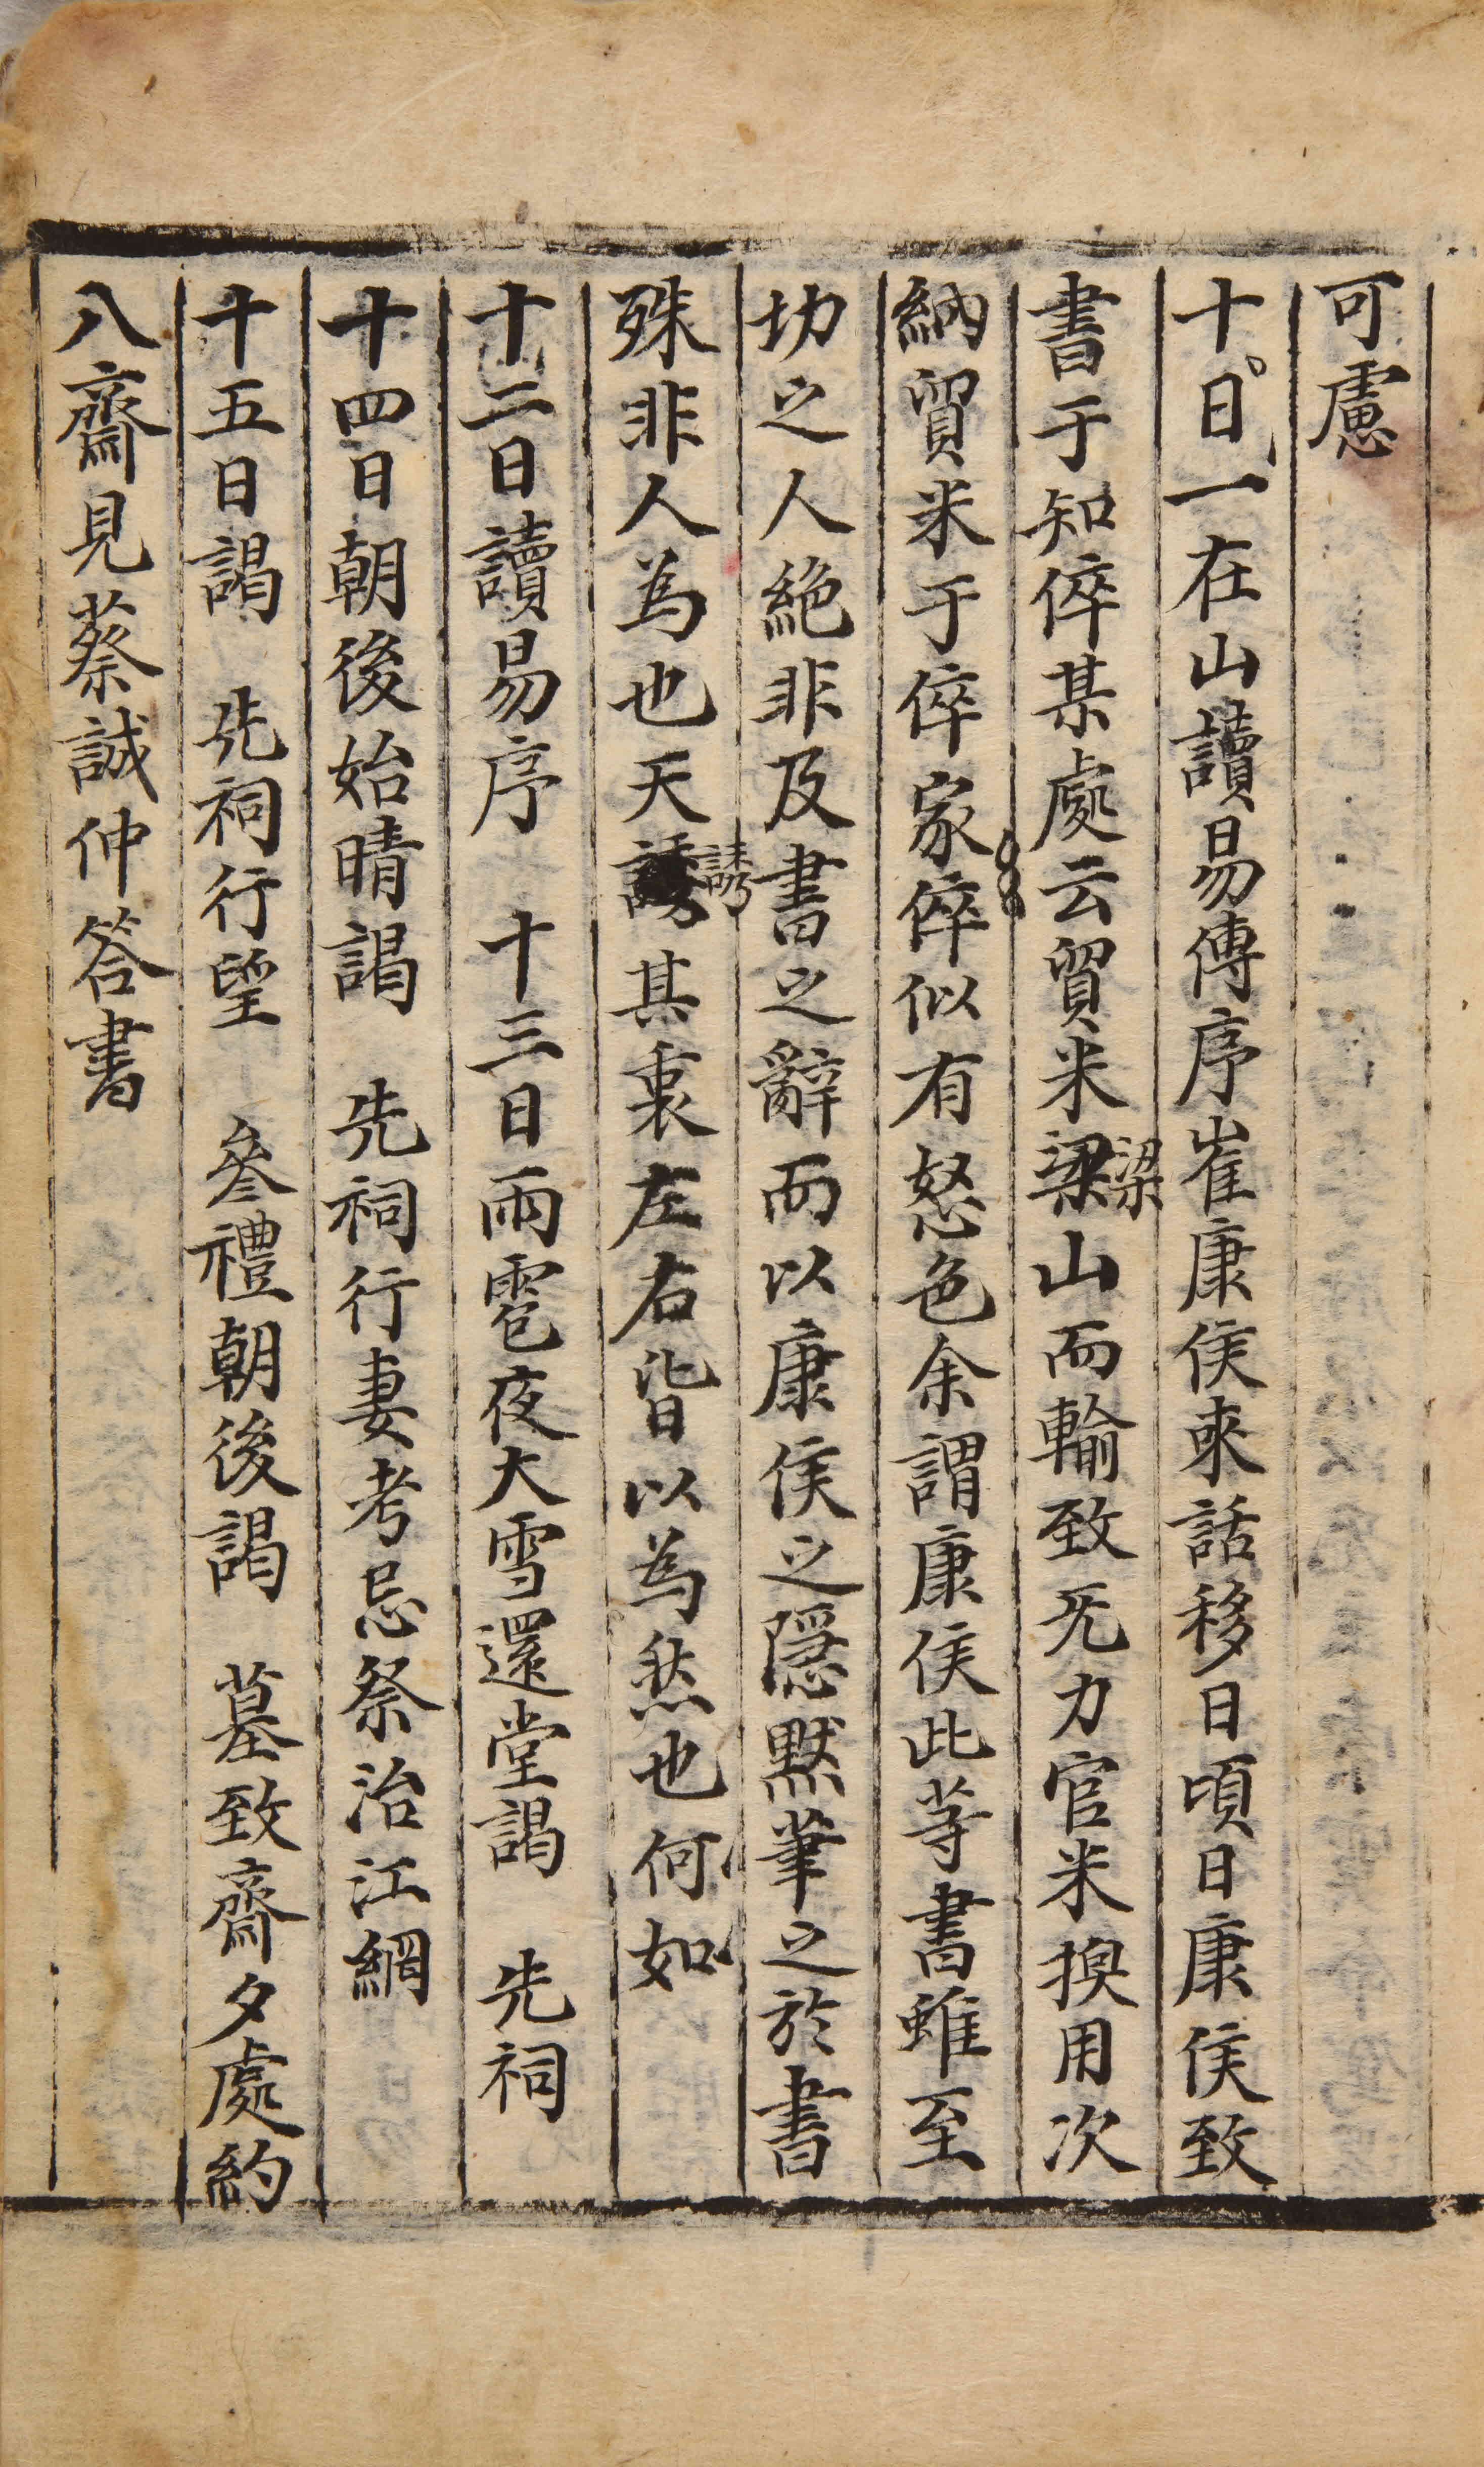 可慮
十日一在山讀易傳序崔康侯來話移日頃日康侯致
書于知倅某處云貿米梁梁山而輸致无力官米換用次
納貿米于倅家倅似有怒色余謂康侯此等書雖至
切之人絶非及書之辭而以康侯之隱默筆之於書
殊非人為也天誘誘其衷左右皆以為然也何如
十二日讀易序 十三日雨雹夜大雪還堂謁 先祠
十四日朝後始晴謁 先祠行妻考忌祭治江網
十五日謁 先祠行望 參禮朝後謁 墓致齋夕處約
八齋見蔡誠仲答書